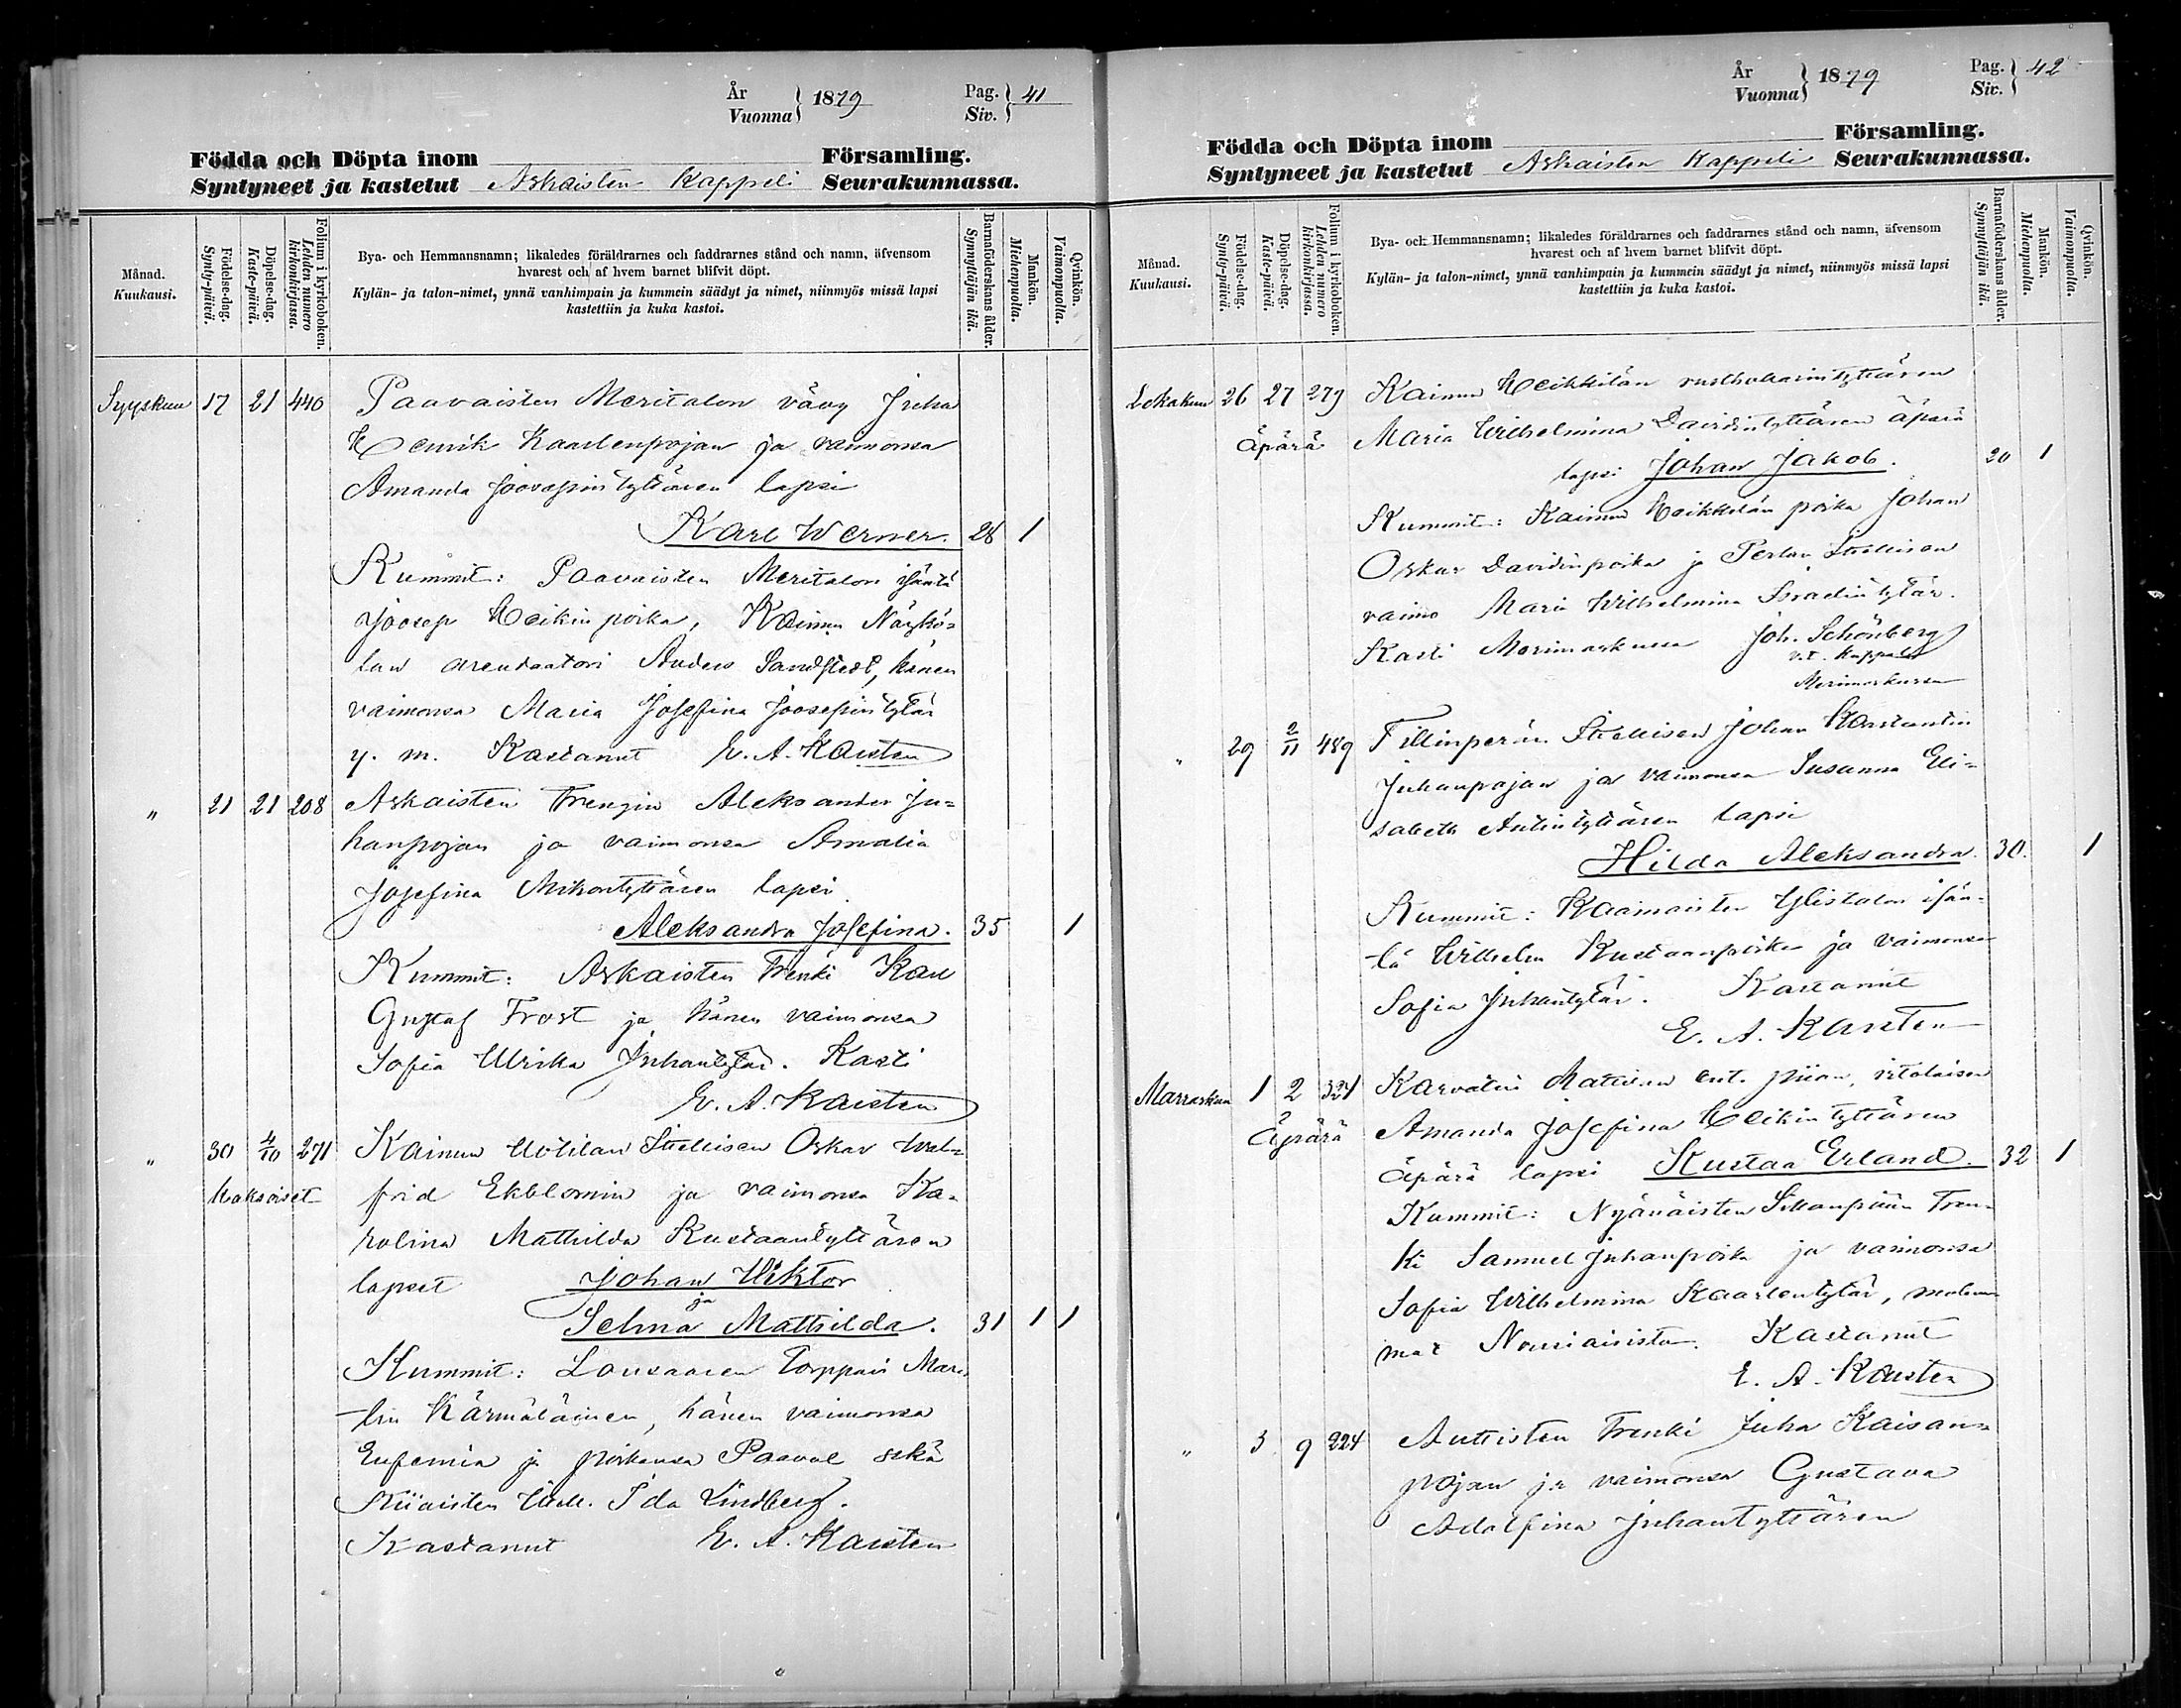 År
Vuonna } 1879
Pag.
Siv. } 41
Födda och Döpta inom Församling.
Syntyneet ja kastetut Askaisten Kappeli Seurakunnassa.
Månad.
Kuukausi.
Födelse-dag.
Synty-päivä.
Döpelse-dag.
Kaste-päivä.
Folium i kyrkoboken.
Lehden numero
kirkonkirjassa.
Bya- och Hemmansnamn; likaledes föräldrarnes och faddrarnes stånd och namn, äfvensom
hvarest och af hvem barnet blifvit döpt.
Kylän- ja talon-nimet, ynnä vanhimpain ja kummein säädyt ja nimet, niinmyös missä lapsi
kastettiin ja kuka kastoi.
Barnaföderskans ålder.
Synnyttäjän ikä.
Mankön.
Miehenpuolia.
Qvinkön.
Vaimonpuolia.
Syyskuu 17 21 440 Paavaisten Meritalon vävy Juha
Henrik Kaarlenpojan ja vaimonsa
Amanda Joosepintyttären lapsi
Karl Werner. 28 1
Kummit: Paavaisten Meritalon isäntä
Joosep Heikinpoika, Kaimun Näykö-
lan arendaatori Anders Sandstedt, hänen
vaimonsa Maria Josefina Joosepintytär
y. m. Kastanut E. A. Karsten
" 21 21 208 Askaisten Trengin Aleksander Ju=
hanpojan ja vaimonsa Amalia
Josefina Mikontyttären lapsi
Aleksandra Josefina. 35 1
Kummit: Askaisten Trenki Karl
Gustaf Frost ja hänen vaimonsa
Sofia Ulrika Juhantytär. Kasti
E. A. Karsten
" 30 4/10 271 Kaimun Uotilan Itsellisen Oskar Wal=
Kaksoiset frid Ekblomin ja vaimonsa Ka=
rolina Mathilda Kustaantyttären
lapset Johan Wiktor
ja
Selma Mathilda. 31 1 1
Kummit: Lousaaren Torppari Mar=
tin Kärmäläinen, hänen vaimonsa
Eufemia ja poikansa Paaval sekä
Ida Lindberg.
Kastanut E. A. Karsten
År
Vuonna } 1879
Pag.
Siv. } 42
Födda och Döpta inom Församling.
Syntyneet ja kastetut Askaisten Kappeli Seurakunnassa.
Månad.
Kuukausi.
Födelse-dag.
Synty-päivä.
Döpelse-dag.
Kaste-päivä.
Folium i kyrkoboken.
Lehden numero
kirkonkirjassa.
Bya- och Hemmansnamn; likaledes föräldrarnes och faddrarnes stånd och namn, äfvensom
hvarest och af hvem barnet blifvit döpt.
Kylän- ja talon-nimet, ynnä vanhimpain ja kummein säädyt ja nimet, niinmyös missä lapsi
kastettiin ja kuka kastoi.
Barnaföderskans ålder.
Synnyttäjän ikä.
Mankön.
Miehenpuolia.
Qvinkön.
Vaimonpuolia.
Lokakuu 26 27 279 Kaimun Heikkilän rusthollarintyttären
Äpärä Maria Wilhelmina Davidintyttären äpärä
lapsi Johan Jakob. 20 1
Kummit: Kaimun Heikkilän poika Johan
Oskar Davidinpoika ja Itsellisen
vaimo Maria Wilhelmina Israelintytär.
Kasti Merimaskussa Joh. Schönberg
v.t. Kappal.
Merimaskussa
" 29 2/11 489 Itsellisen Johan Konstantin
Juhanpojan ja vaimonsa Susanna Eli=
sabeth Antintyttären lapsi
Hilda Aleksandra. 30. 1
Kummit: Kaamaisten Ylistalon isän-
tä Wilhelm Kustaanpoika ja vaimonsa
Sofia Juhantytär. Kastanut
E. A. Karsten
Marraskuu 1 2 324 Karvatin Mattilan ent. piian, irtolaisen
Äpärä Amanda Josefina Heikintyttären
äpärä lapsi Kustaa Erland. 32 1
Kummit: Nyänäisten Tren=
ki Samuel Juhanpoika ja vaimonsa
Sofia Wilhelmina Kaarlentytär, molem=
mat Nousiaisista. Kastanut
E. A. Karsten
" 3 9 224 Auttisten Trenki Juha Kaisan=
pojan ja vaimonsa Gustava
Adolfina Juhantyttären